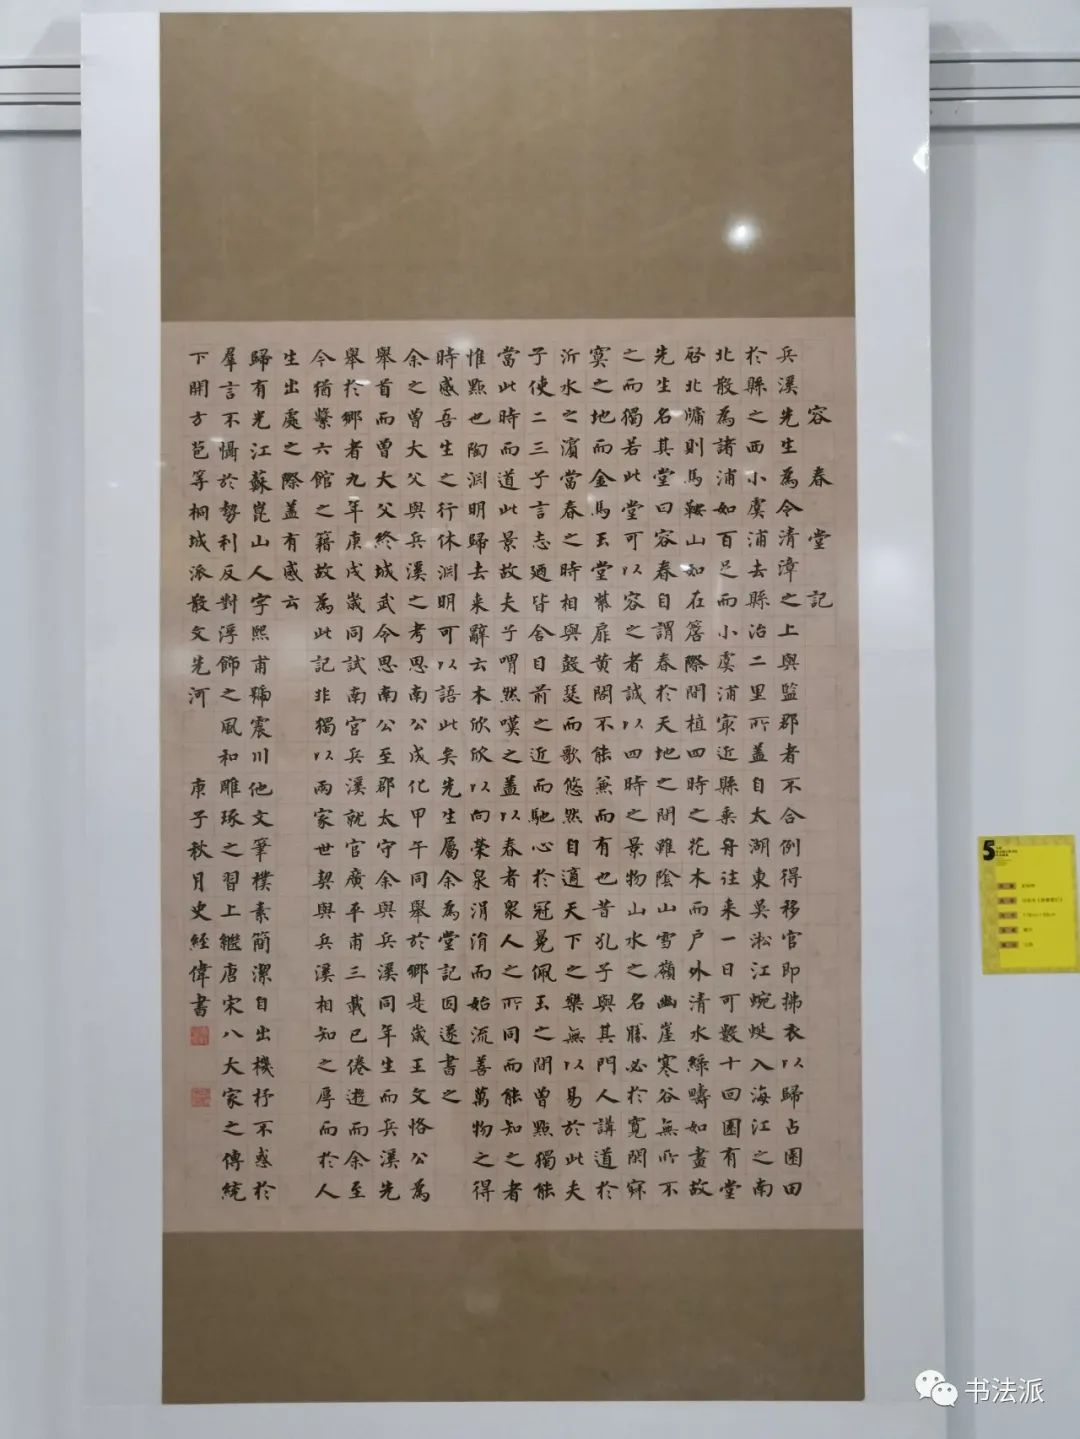 容春堂記
兵溪先生為令清漳之上與監郡者不合例得移官即拂衣以歸占園田
於縣之西小虞浦去縣治二里所蓋自太湖東吳淞江蜿蜒入海江之南
北散為諸浦如百足而小虞浦寂近縣乘舟往来一日可數十回園有堂
啓北牖則馬鞍山如在簷際閒植四時之花木而戶外清水綠疇如畫故
先生名其堂曰容春自謂春於天地之間雖陰山雪嶺幽崖寒谷無所不
之而獨若此堂可以容之者誠以四時之景物山水之名勝必於寬閑寂
寞之地而金馬玉堂紫扉黃閣不能兼而有也昔孔子與其門人講道於
沂水之濱當春之時相與鼓瑟而歌悠然自適天下之樂無以易於此夫
子使二三子言志迺皆舍目前之近而馳心於冠冕佩玉之間曾點獨能
當此時而道此景故夫子喟然嘆之蓋以春者衆人之所同而能知之者
惟點也陶淵明歸去来辭云木欣欣以向榮泉涓涓而始流善萬物之得
時感吾生之行休淵明可以語此矣先生屬余為堂記因遂書之
余之曾大父與兵溪之考思南公成化甲午同舉於鄉是歲王文恪公為
舉首而曾大父終城武令思南公至郡太守余與兵溪同年生而兵溪先
舉於鄉者九年庚戌歲同試南宮兵溪就官廣平甫三載已倦遊而余至
今猶縻六館之籍故為此記非獨以兩家世契與兵溪相知之厚而於人
生出處之際蓋有感云
歸有光江蘇崑山人字熙甫號震川他文筆樸素簡潔自出機杼不惑於
羣言不懾於勢利反對浮飾之風和雕琢之習上繼唐宋八大家之傳統
下開方苞等桐城派散文先河 庚子秋月史經偉書
5
书法派